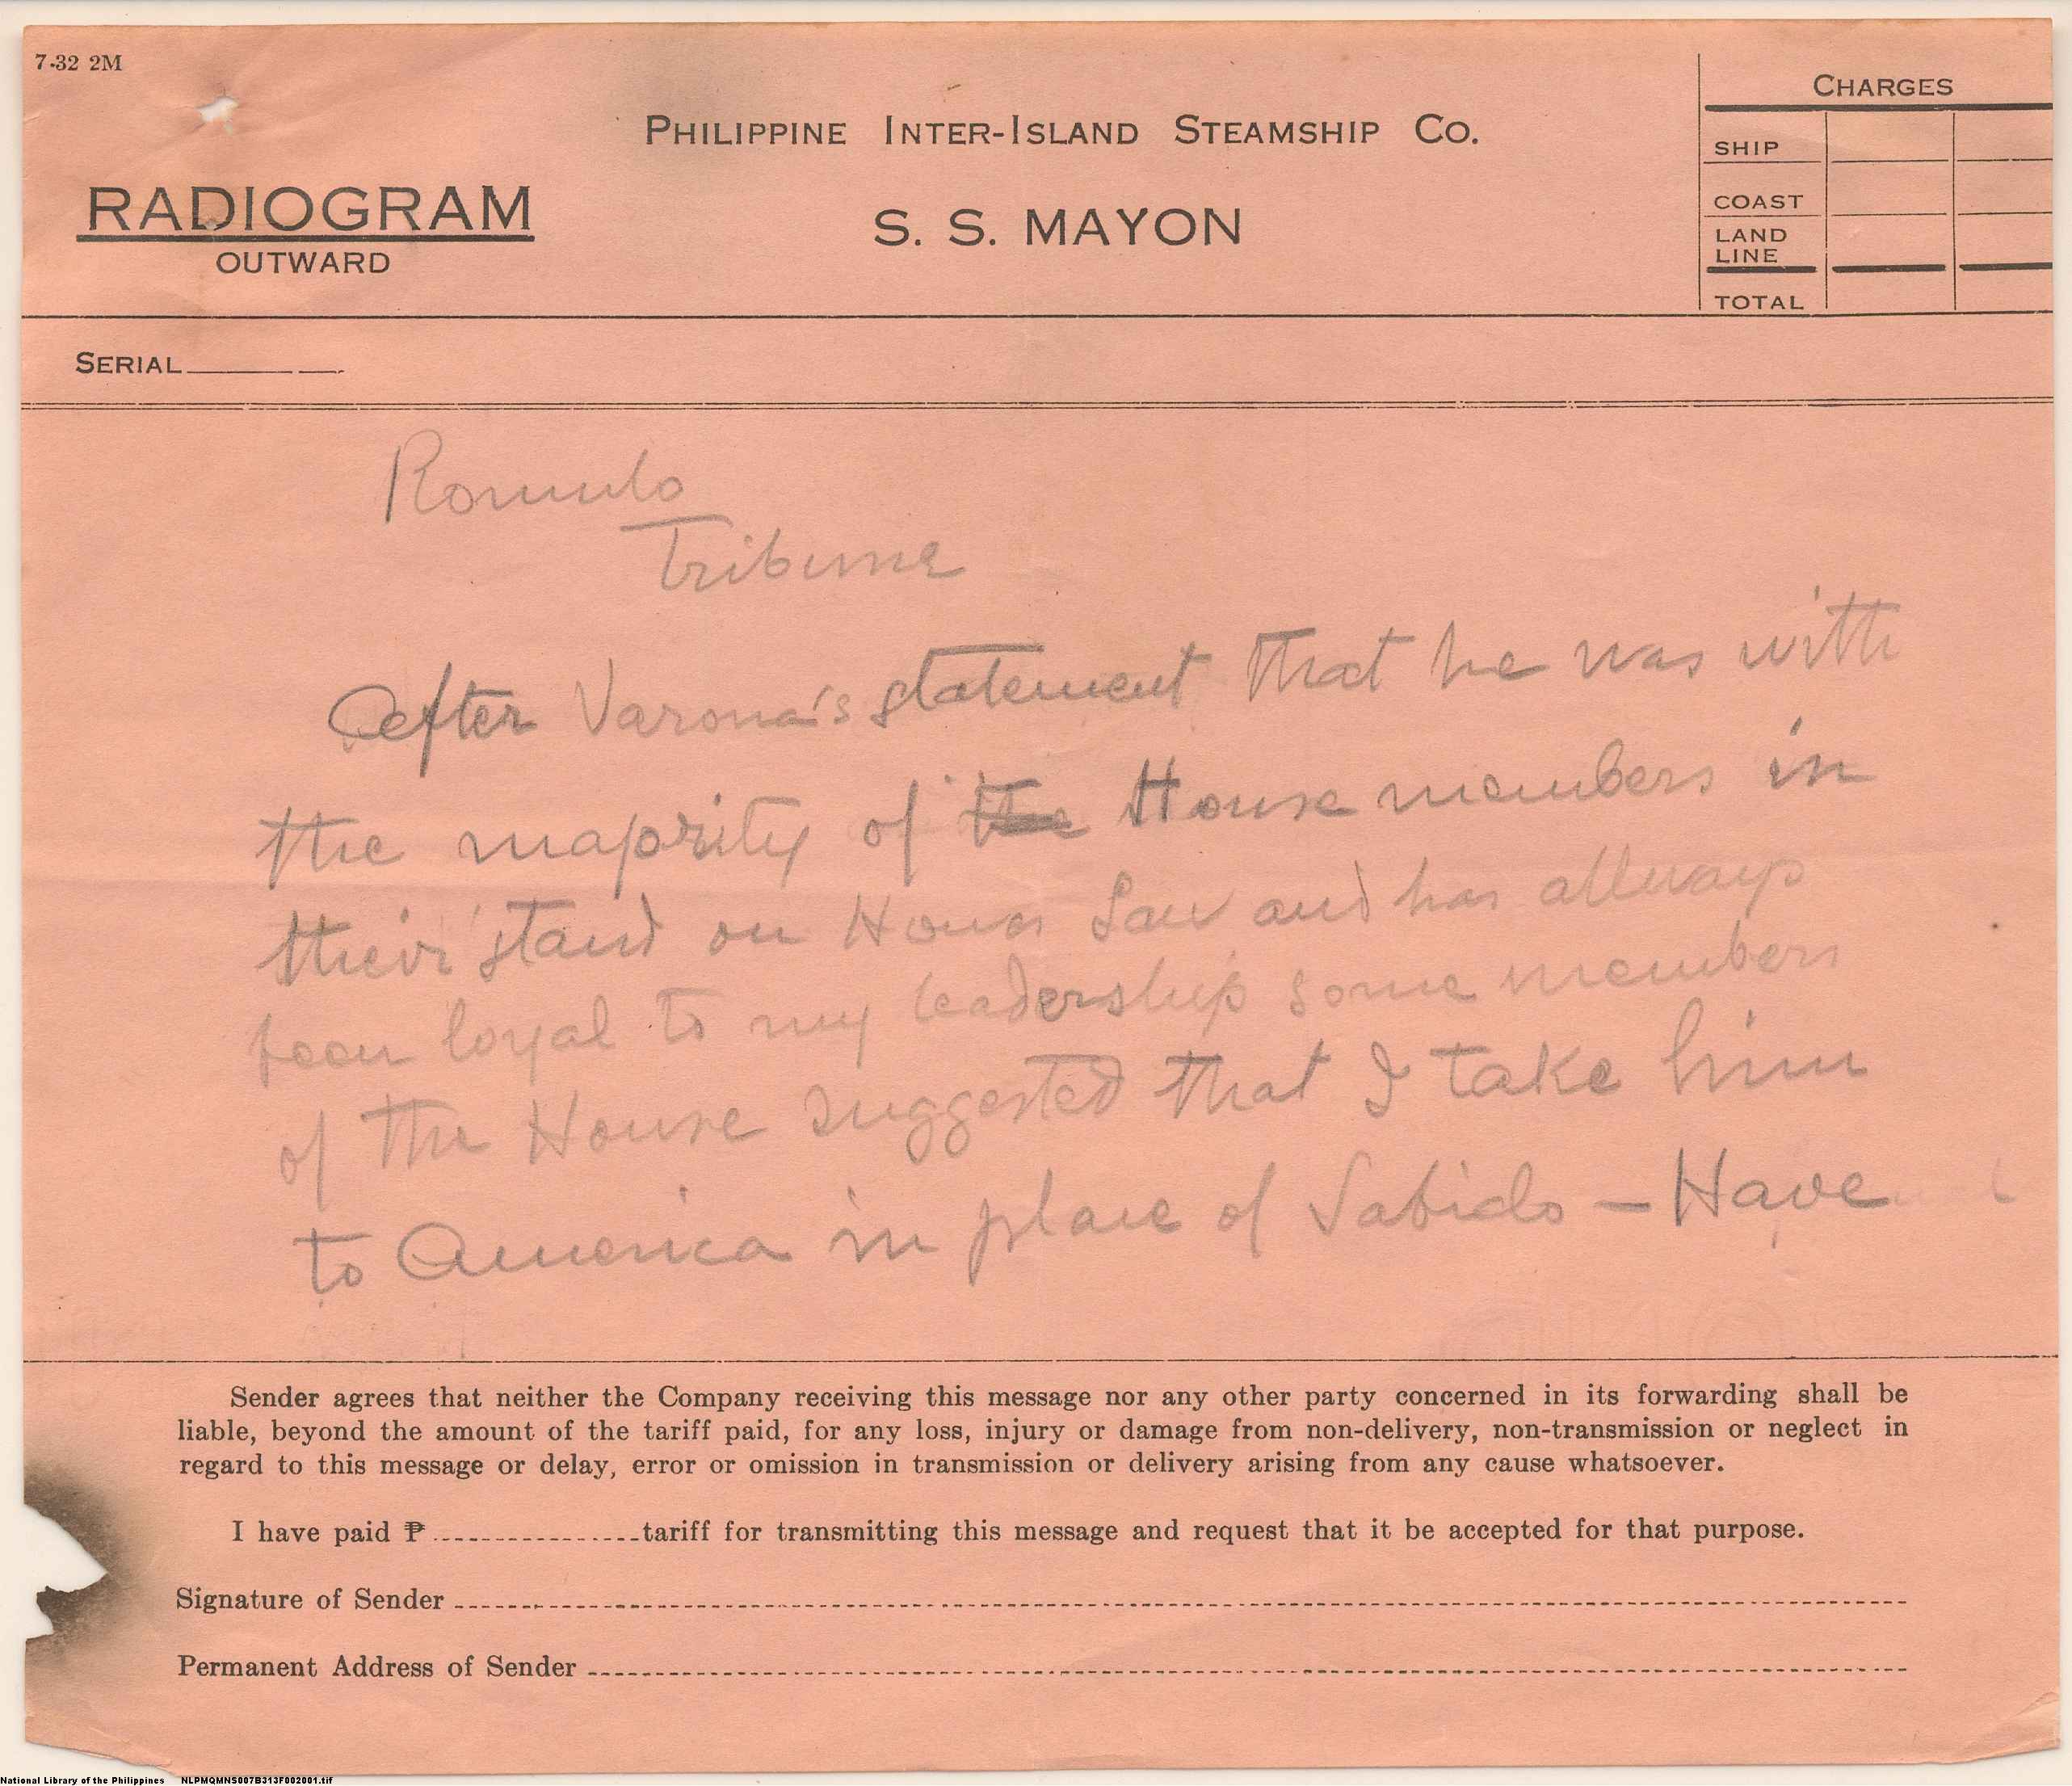 7-32 2M
PHILIPPINE INTER-ISLAND STEAMSHIP CO.
S. S. MAYON
RADIOGRAM
OUTWARD
CHARGES
SHIP
COAST
LAND
LINE
TOTAL
SERIAL
Romulo
Tribune
After Varona's statement that he was with
the majority of the House members in
their stand on Hawes Law and has allways
been loyal to my leadership some members
of the House suggested that I take him
to America in place of Sabido — Have
Sender agrees that neither the Company receiving this message nor any other party concerned in its forwarding shall be
liable, beyond the amount of the tariff paid, for any loss, injury or damage from non-delivery, non-transmission or neglect in
regard to this message or delay, error or omission in transmission or delivery arising from any cause whatsoever.
I have paid ₱ tariff for transmitting this message and request that it be accepted for that purpose.
Signature of Sender
Permanent Address of Sender
National Library of the Philippines NLPMQMNS007B313F002001.tif